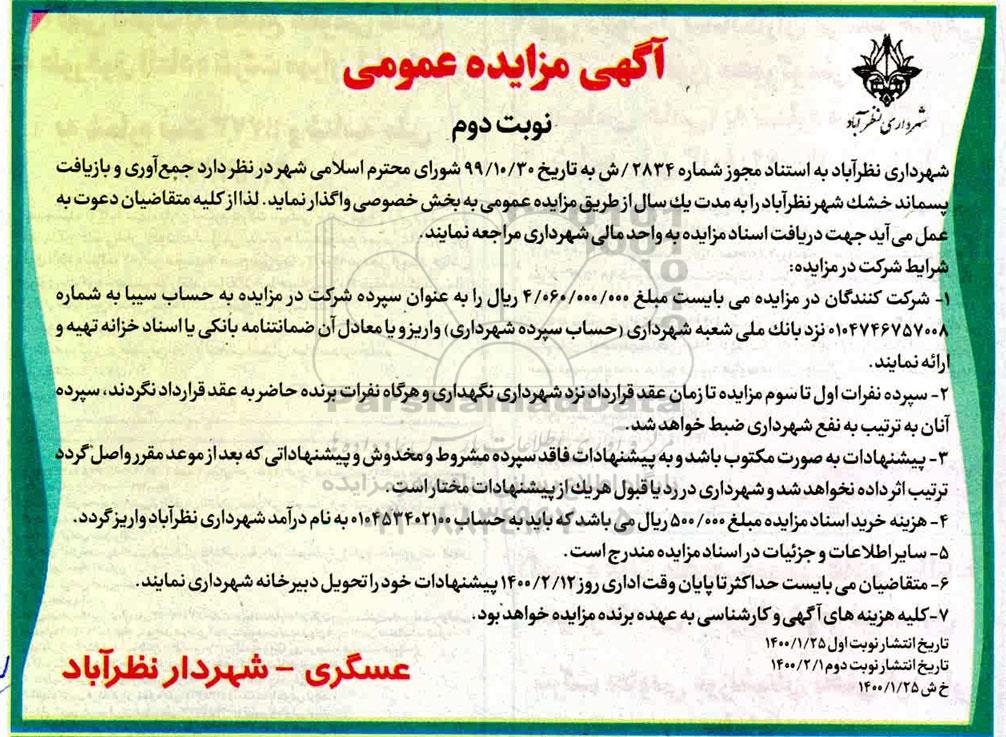 شهرداری نظرآباد
آگهی مزایده عمومی
نوبت دوم
شهرداری نظرآباد به استناد مجوز شماره ۲۸۳۴ /ش به تاریخ ۹۹/۱۰/۳۰ شورای محترم اسلامی شهر در نظر دارد جمع‌آوری و بازیافت
پسماند خشك شهر نظرآباد را به مدت یك سال از طریق مزایده عمومی به بخش خصوصی واگذار نماید. لذا از کلیه متقاضیان دعوت به
عمل می‌آید جهت دریافت اسناد مزایده به واحد مالی شهرداری مراجعه نمایند.
شرایط شرکت در مزایده:
۱- شرکت کنندگان در مزایده می بایست مبلغ ۴/۰۶۰/۰۰۰/۰۰۰ ریال را به عنوان سپرده شرکت در مزایده به حساب سیبا به شماره
۰۱۰۴۷۴۶۷۵۷۰۰۸ نزد بانك ملی شعبه شهرداری (حساب سپرده شهرداری) واریز و یا معادل آن ضمانتنامه بانکی یا اسناد خزانه تهیه و
ارائه نمایند.
۲- سپرده نفرات اول تا سوم مزایده تا زمان عقد قرارداد نزد شهرداری نگهداری و هرگاه نفرات برنده حاضر به عقد قرارداد نگردند، سپرده
آنان به ترتیب به نفع شهرداری ضبط خواهد شد.
۳- پیشنهادات به صورت مکتوب باشد و به پیشنهادات فاقد سپرده مشروط و مخدوش و پیشنهاداتی که بعد از موعد مقرر واصل گردد
ترتیب اثر داده نخواهد شد و شهرداری در رد یا قبول هر یك از پیشنهادات مختار است.
۴- هزینه خرید اسناد مزایده مبلغ ۵۰۰/۰۰۰ ریال می باشد که باید به حساب ۰۱۰۴۵۳۴۰۲۱۰۰ به نام درآمد شهرداری نظرآباد واریز گردد.
۵- سایر اطلاعات و جزئیات در اسناد مزایده مندرج است.
۶- متقاضیان می بایست حداکثر تا پایان وقت اداری روز ۱۴۰۰/۲/۱۲ پیشنهادات خود را تحویل دبیرخانه شهرداری نمایند.
۷- کلیه هزینه های آگهی و کارشناسی به عهده برنده مزایده خواهد بود.
تاریخ انتشار نوبت اول ۱۴۰۰/۱/۲۵
تاریخ انتشار نوبت دوم ۱۴۰۰/۲/۱
خ ش ۱۴۰۰/۱/۲۵
عسگری - شهردار نظرآباد
ParsNamadData